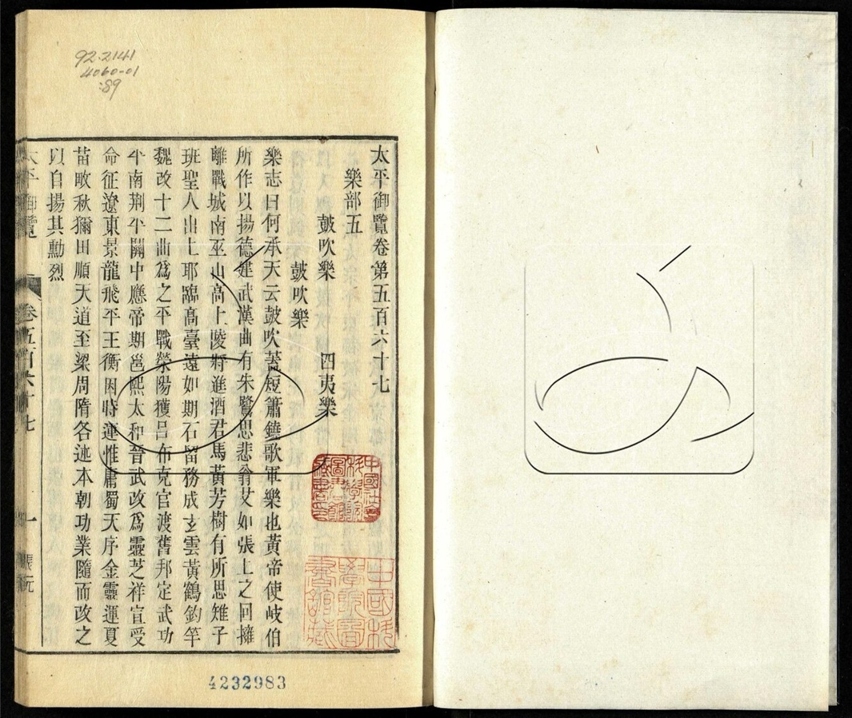 92.2141
4060-01
:89
太平御覽卷第五百六十七
樂部五
鼓吹樂 四夷樂
鼓吹樂
樂志曰何承天云鼓吹蓋短簫鐃歌軍樂也黃帝使岐伯
所作以揚德建武漢曲有朱鷺思悲翁艾如張上之回擁
離戰城南巫山高上陵將進酒君馬黃芳樹有所思雉子
班聖人出上耶臨高臺遠如期石留務成玄雲黃鶴釣竿
魏改十二曲爲之平戰滎陽獲呂布克官渡舊邦定武功
平南荆平關中應帝期邕熙太和晉武改爲靈芝祥宣受
命征遼東景龍飛平王衡因時運惟庸蜀天序金靈運夏
苗畋秋獮田順天道至梁周隋各述本朝功業隨而改之
以自揚其勳烈
太平御覽 卷五百六十七 一
中國社會科學院圖書館藏書
中國科學院圖書館藏
4232983